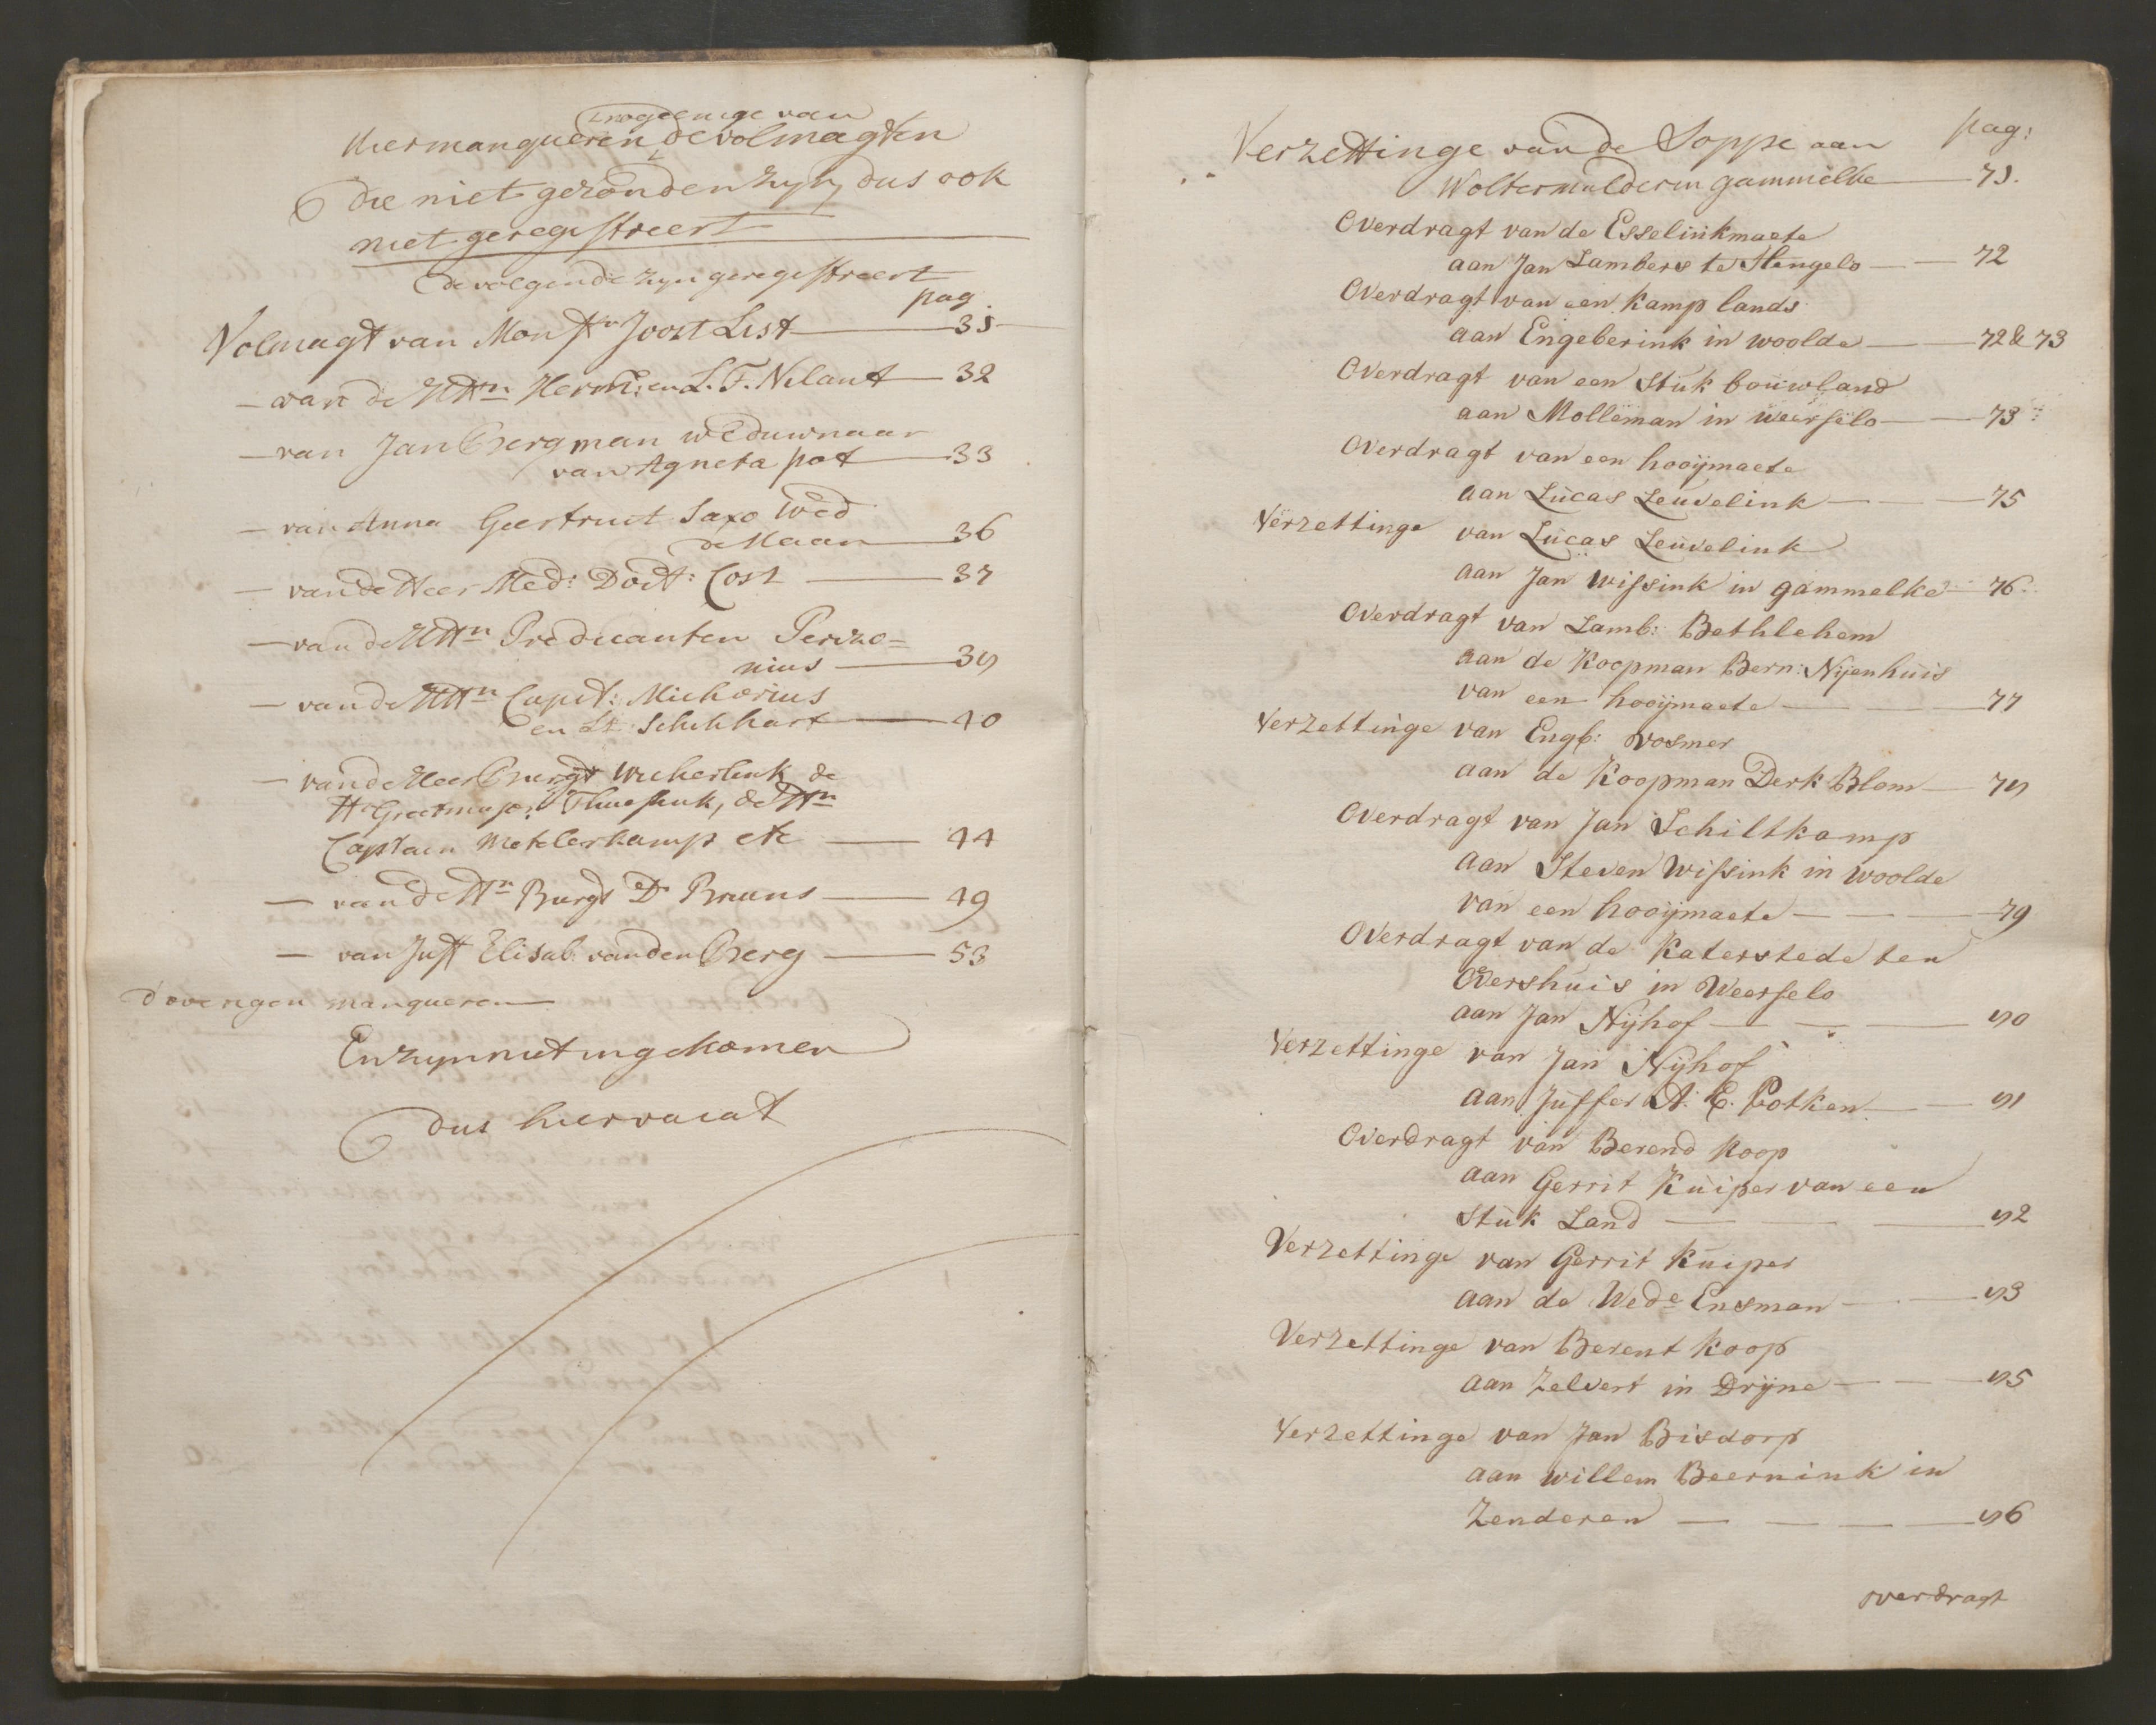 nog eenige van
Hier manqueren de volmagten
die niet gezonden zyn, dus ook
niet geregistreert
de volgende zyn geregistreert
pag
Volmagt van Monsr Joost List 31
- van de HHn Herm: en L. F. Nilant 32
- van Jan Bergman weduwnaar
van Agneta pot 33
- van Anna Geertruit Saxo Wed
de Haan 36
- van de Heer Med: Doct: Cost 37
- van de HHn Predicanten Perizo=
nius 38
- van de HHn Capit: Michorius
en Lt Schikhart 40
- van de Heer Burgr Wicherlink de
Hr Captain Metelerkamp etc 44
- van de Hr Burgr Dr Bruns 49
- van Juff Elisab: van den Berg 53
d'overigen manqueren
En zyn niet ingekomen
dus hier vacat
pag:
Verzettinge van de Soppe aan
Wolter mulder in gammelke 71.
Overdragt van de Esselinkmaete
aan Jan Lambers te Hengelo 72
Overdragt van een kamp lands
aan Engeberink in woolde 72 & 73
Overdragt van een stuk bouwland
aan Molleman in weerselo 73
Overdragt van een hooijmaete
aan Lucas Leuvelink 75
Verzettinge van Lucas Leuvelink
aan Jan Wissink in gammelke 76
Overdragt van Lamb: Bethlehem
aan de Koopman Bern: Nijenhuis
van een hooijmaete 77
Verzettinge van Engb: Vosmer
aan de Koopman Derk Blom 78
Overdragt van Jan Schiltkamp
aan Steven Wissink in woolde
van een hooijmaete 79
Overdragt van de Katerstede ten
Overshuis in Weerselo
aan Jan Nijhof 80
Verzettinge van Jan Nijhof
aan Juffer A. E. Potken 81
Overdragt van Berend Koop
aan Gerrit Kuiper van een
stuk Land 82
Verzettinge van Gerrit Kuiper
aan de Wede Ensman 83
Verzettinge van Berent Koop
aan Zelvert in Drijne 85
Verzettinge van Jan Bisdorp
aan willem Beernink in
Zenderen 86
overdragt